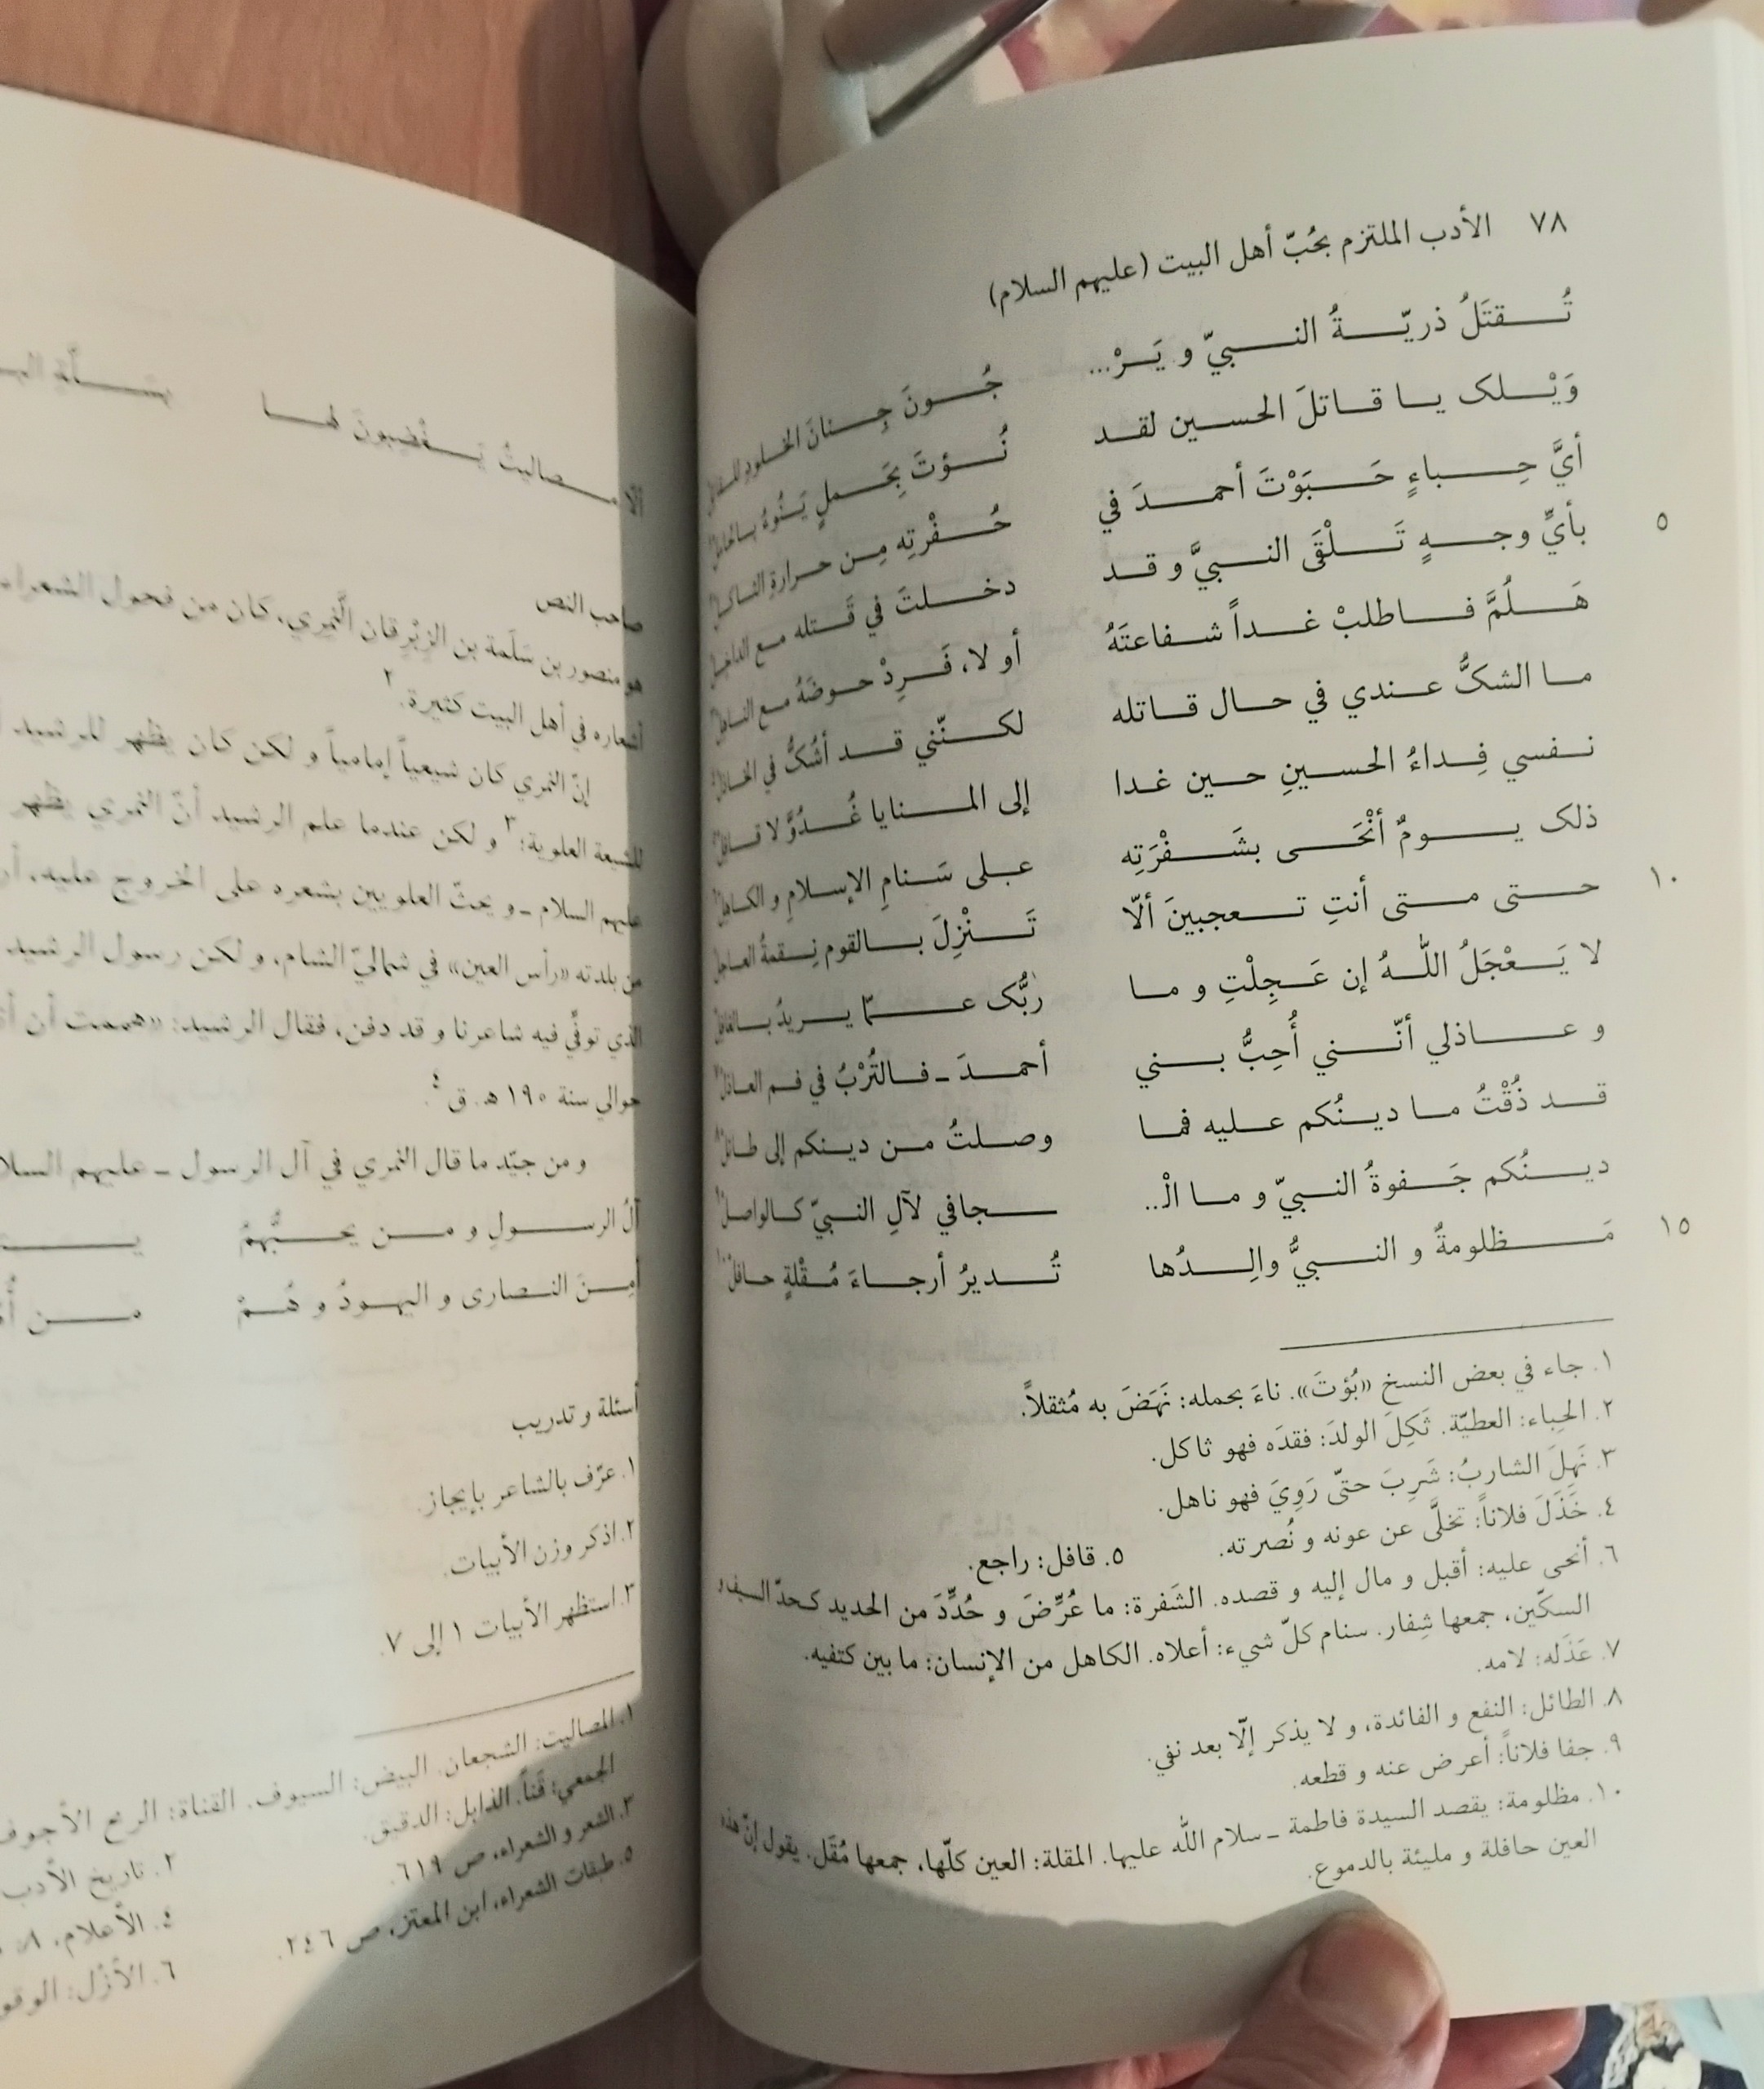 ٧٨ الأدب الملتزم بحُبّ أهل البيت (عليهم السلام)
تُقتَلُ ذريّةُ النبيّ و يَرْ... جُونَ جِنانَ الخلودِ للقاتلْ
وَيْلک يا قاتلَ الحسين لقد نُؤتَ بِحَملٍ يَنُوءُ بالحاملْ١
أيَّ حِباءٍ حَبَوْتَ أحمدَ في حُفْرتِه مِن حرارةِ الثاكلْ٢
٥ بأيِّ وجهٍ تَلْقَى النبيَّ و قد دخلتَ في قَتله مع الداخلْ
هَلُمَّ فاطلبْ غداً شفاعتَهُ أو لا، فَرِدْ حوضَهُ مع الناهلْ٣
ما الشکُّ عندي في حال قاتله لكنّني قد أشُکُّ في الخاذلْ٤
نفسي فِداءُ الحسينِ حين غدا إلى المنايا غُدُوَّ لا قافلْ٥
ذلک يومٌ أنْحَى بشَفْرَتِه على سَنامِ الإسلامِ و الكاهلْ٦
١٠ حتى متى أنتِ تعجبينَ ألّا تَنْزِلَ بالقوم نِقمةُ العاجلْ
لا يَعْجَلُ اللّٰهُ إن عَجِلْتِ و ما ربُّک عمّا يريدُ بالغافلْ
و عاذلي أنّني أُحِبُّ بني أحمدَ ـ فالتُرْبُ في فم العاذلْ٧
قد ذُقْتُ ما دينُكم عليه فما وصلتُ من دينكم إلى طائلْ٨
دينُكم جَفوةُ النبيّ و ما الْـ.. ـجافي لآلِ النبيّ كالواصلْ٩
١٥ مَظلومةٌ و النبيُّ والِدُها تُديرُ أرجاءَ مُقْلةٍ حافلْ١٠
١. جاء في بعض النسخ «بُؤتَ». ناءَ بحمله: نَهَضَ به مُثقلاً.
٢. الحِباء: العطيّة. ثَكِلَ الولدَ: فقدَه فهو ثاكل.
٣. نَهِلَ الشاربُ: شَرِبَ حتّى رَوِيَ فهو ناهل.
٤. خَذَلَ فلاناً: تخلَّى عن عونه و نُصرته. ٥. قافل: راجع.
٦. أنحى عليه: أقبل و مال إليه و قصده. الشَفرة: ما عُرِّضَ و حُدِّدَ من الحديد كحدّ السيف و
السكّين، جمعها شِفار. سنام كلّ شيء: أعلاه. الكاهل من الإنسان: ما بين كتفيه.
٧. عَذَله: لامه.
٨. الطائل: النفع و الفائدة، و لا يذكر إلّا بعد نفي.
٩. جفا فلاناً: أعرض عنه و قطعه.
١٠. مظلومة: يقصد السيدة فاطمة ـ سلام اللّٰه عليها. المقلة: العين كلّها، جمعها مُقَل. يقول إنّ هذه
العين حافلة و مليئة بالدموع.
ألا مصاليتُ يَغْضِبونَ لها
صاحب النص
هو منصور بن سَلَمة بن الزِبْرِقان النَّمِري، كان من فحول الشعراء
أشعاره في أهل البيت كثيرة.٢
إنّ النمري كان شيعياً إمامياً و لكن كان يظهر للرشيد
للشيعة العلوية؛٣ و لكن عندما علم الرشيد أنّ النمري يظهر
عليهم السلام ـ و يحثّ العلويين بشعره على الخروج عليه،
من بلدته «رأس العين» في شماليّ الشام، و لكن رسول الرشيد
الذي توفّي فيه شاعرنا و قد دفن، فقال الرشيد: «هممت أن
حوالي سنة ١٩٠ هـ. ق.٤
و من جيّد ما قال النمري في آل الرسول ـ عليهم
آلُ الرسولِ و من يحبُّهمْ
أمِنَ النصارى و اليهودُ و هُمْ
أسئلة و تدريب
١. عرّف بالشاعر بإيجاز.
٢. اذكر وزن الأبيات.
٣. استظهر الأبيات ١ إلى ٧.
١. المصاليت: الشجعان. البيض: السيوف. القناة: الرمح الأجوف
الجمعي: قَناً. الذابل: الدقيق.
٢. تاريخ الأدب
٣. الشعر و الشعراء، ص ٦١٩.
٤. الأعلام، ٨
٥. طبقات الشعراء، ابن المعتز، ص ٢٤٦.
٦. الأزْل: